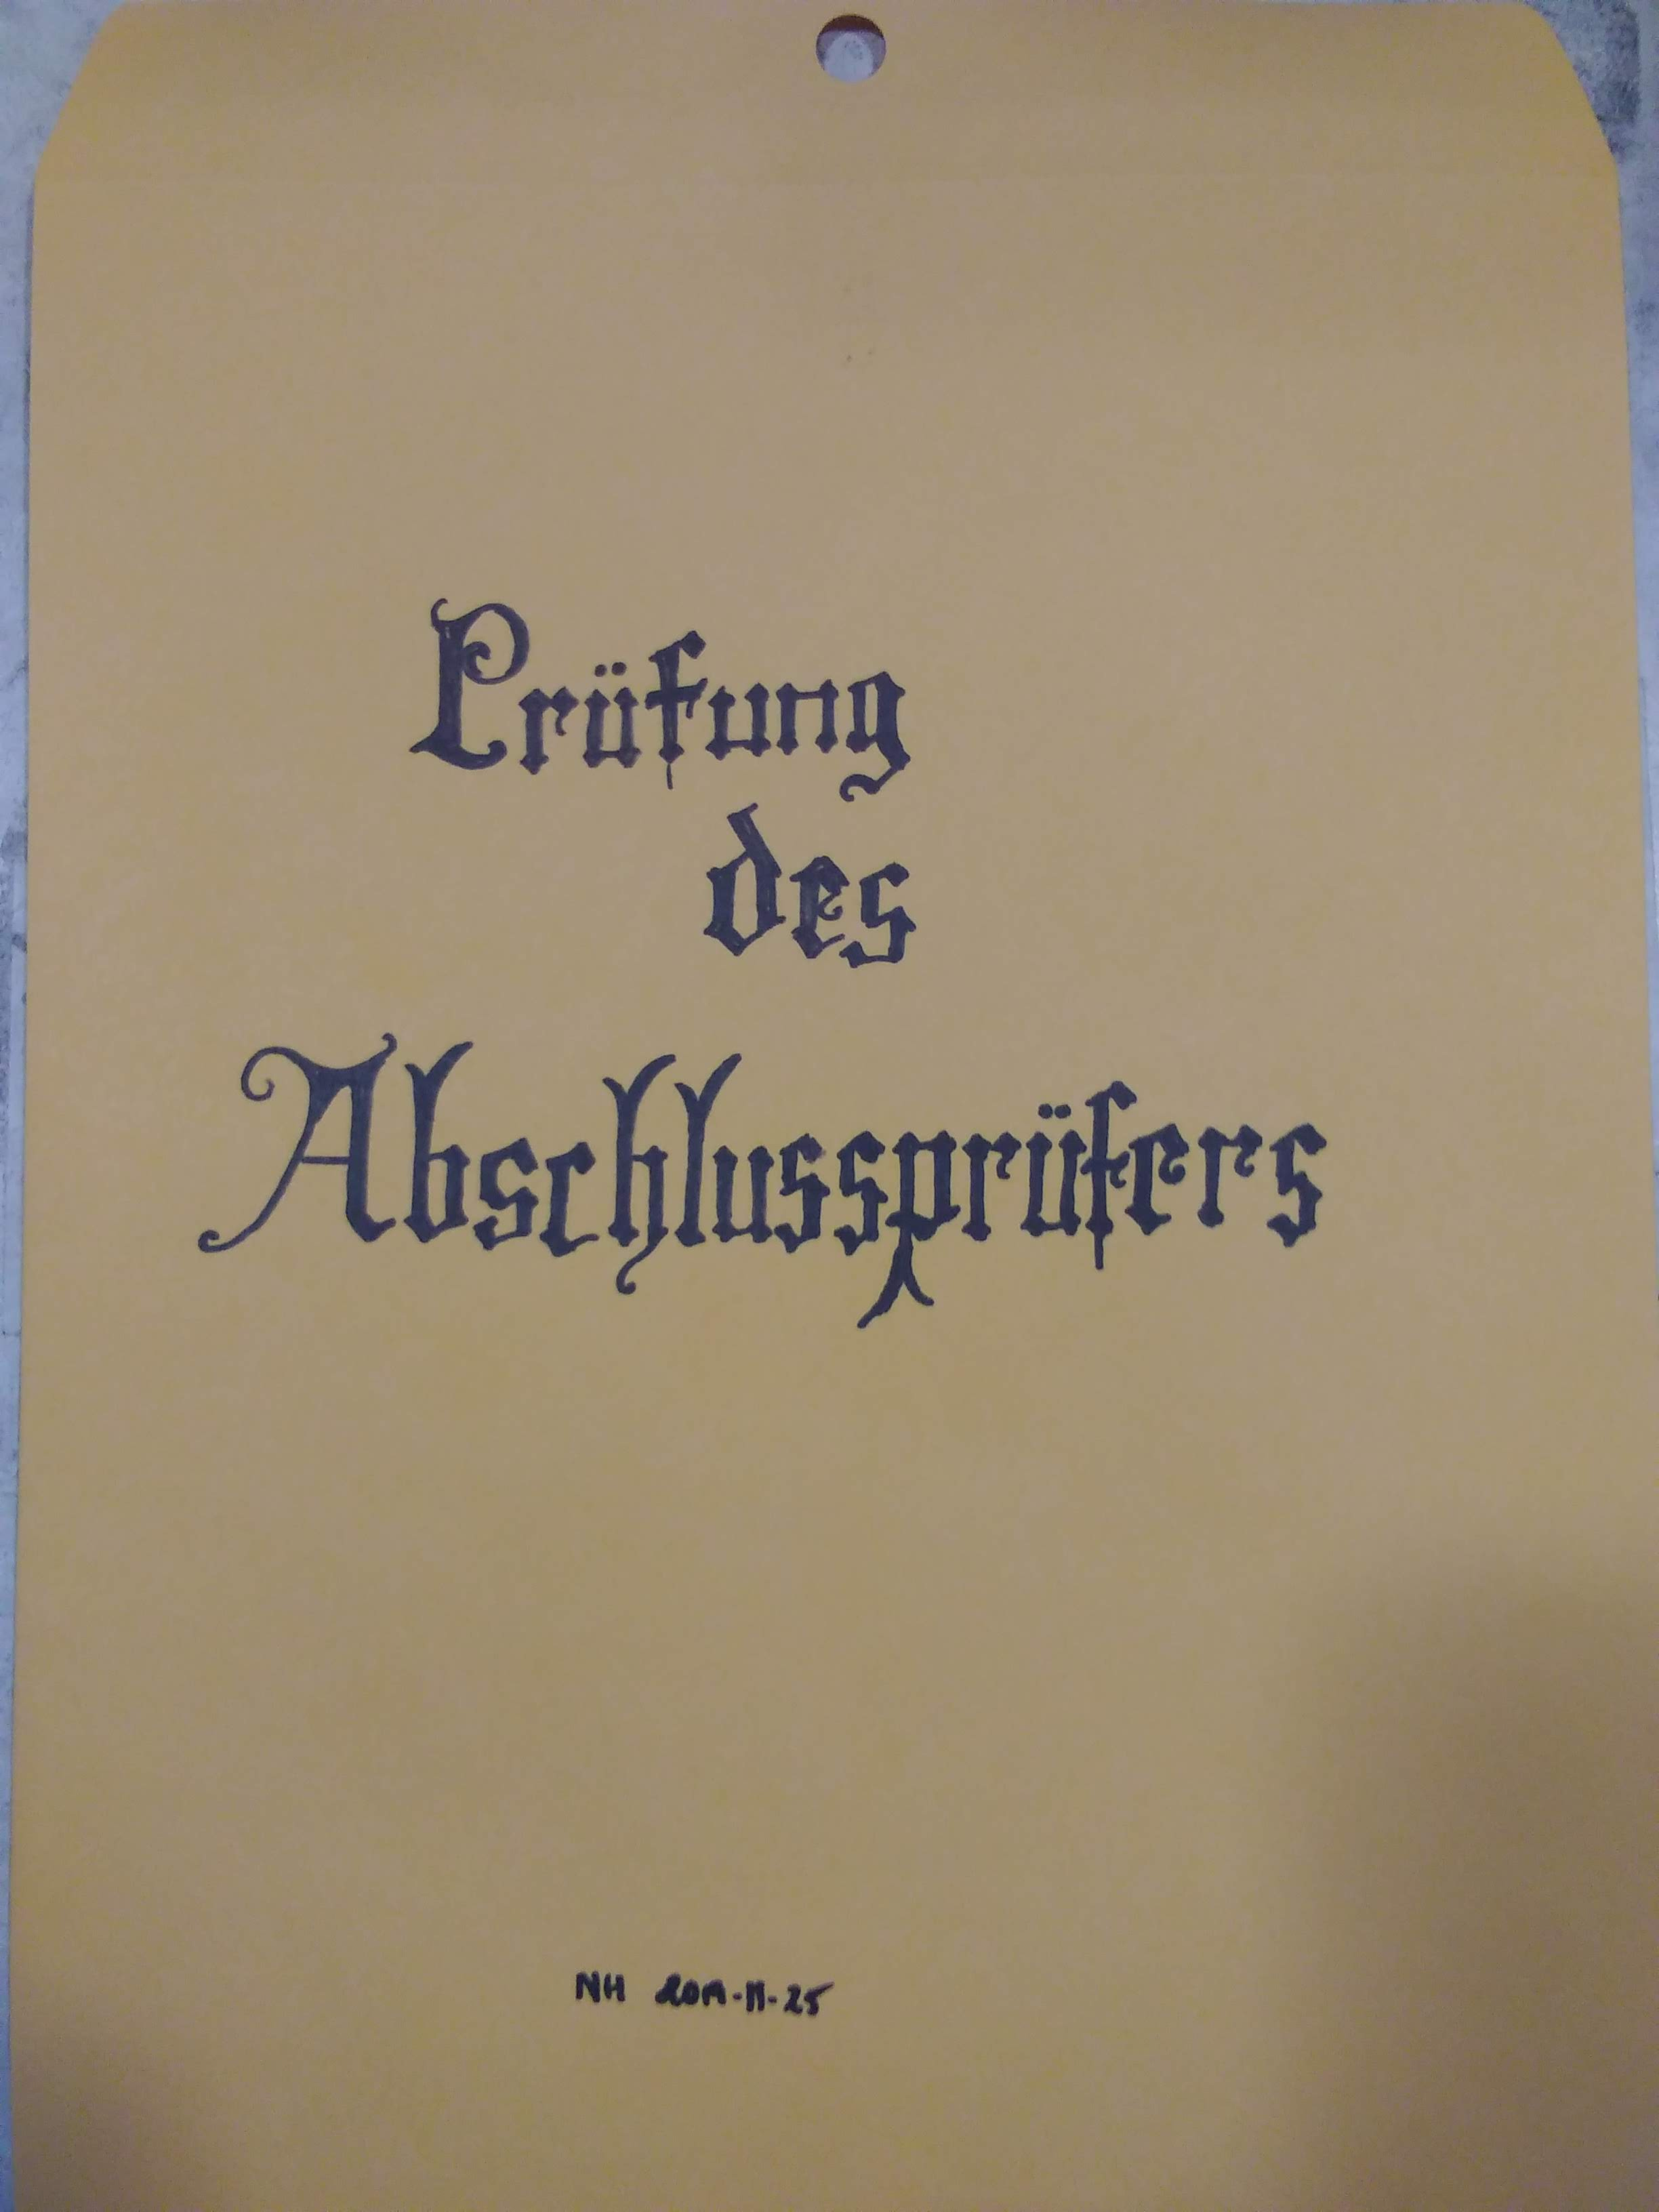 Prüfung
des
Abschlussprüfers
NH 2019-11-25